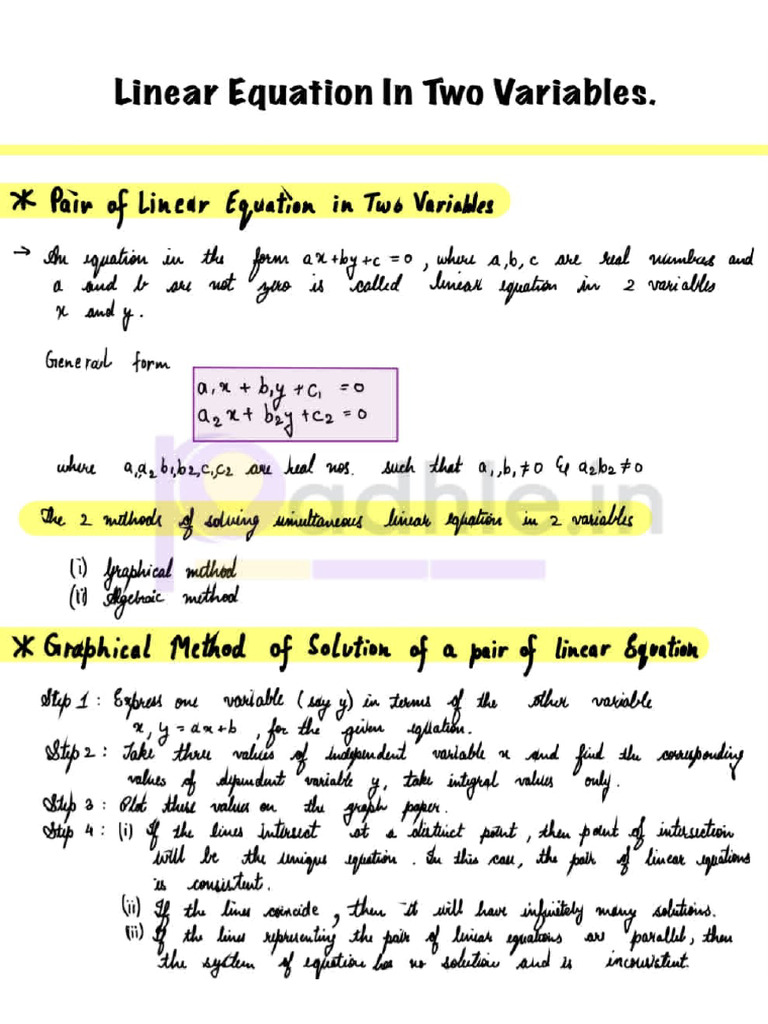 Linear Equation In Two Variables.
* Pair of Linear Equation in Two Variables
→ An equation in the form ax+by+c=0, where a,b,c are real numbers and
a and b are not zero is called linear equation in 2 variables
x and y.
General form
a₁x + b₁y + c₁ = 0
a₂x + b₂y + c₂ = 0
where a₁a₂b₁b₂c₁c₂ are real nos. such that a₁,b₁≠0 & a₂b₂≠0
Padhle.in
The 2 methods of solving simultaneous linear equation in 2 variables
(i) Graphical method
(ii) Algebraic method
* Graphical Method of Solution of a pair of linear Equation
Step 1: Express one variable (say y) in terms of the other variable
x, y = ax+b, for the given equation.
Step 2: Take three values of independent variable x and find the corresponding
values of dependent variable y, take integral values only.
Step 3: Plot these values on the graph paper.
Step 4: (i) If the lines intersect at a distinct point, then point of intersection
will be the unique equation. In this case, the pair of linear equations
is consistent.
(ii) If the lines coincide, then it will have infinitely many solutions.
(ii) If the lines representing the pair of linear equations are parallel, then
the system of equation has no solution and is inconsistent.